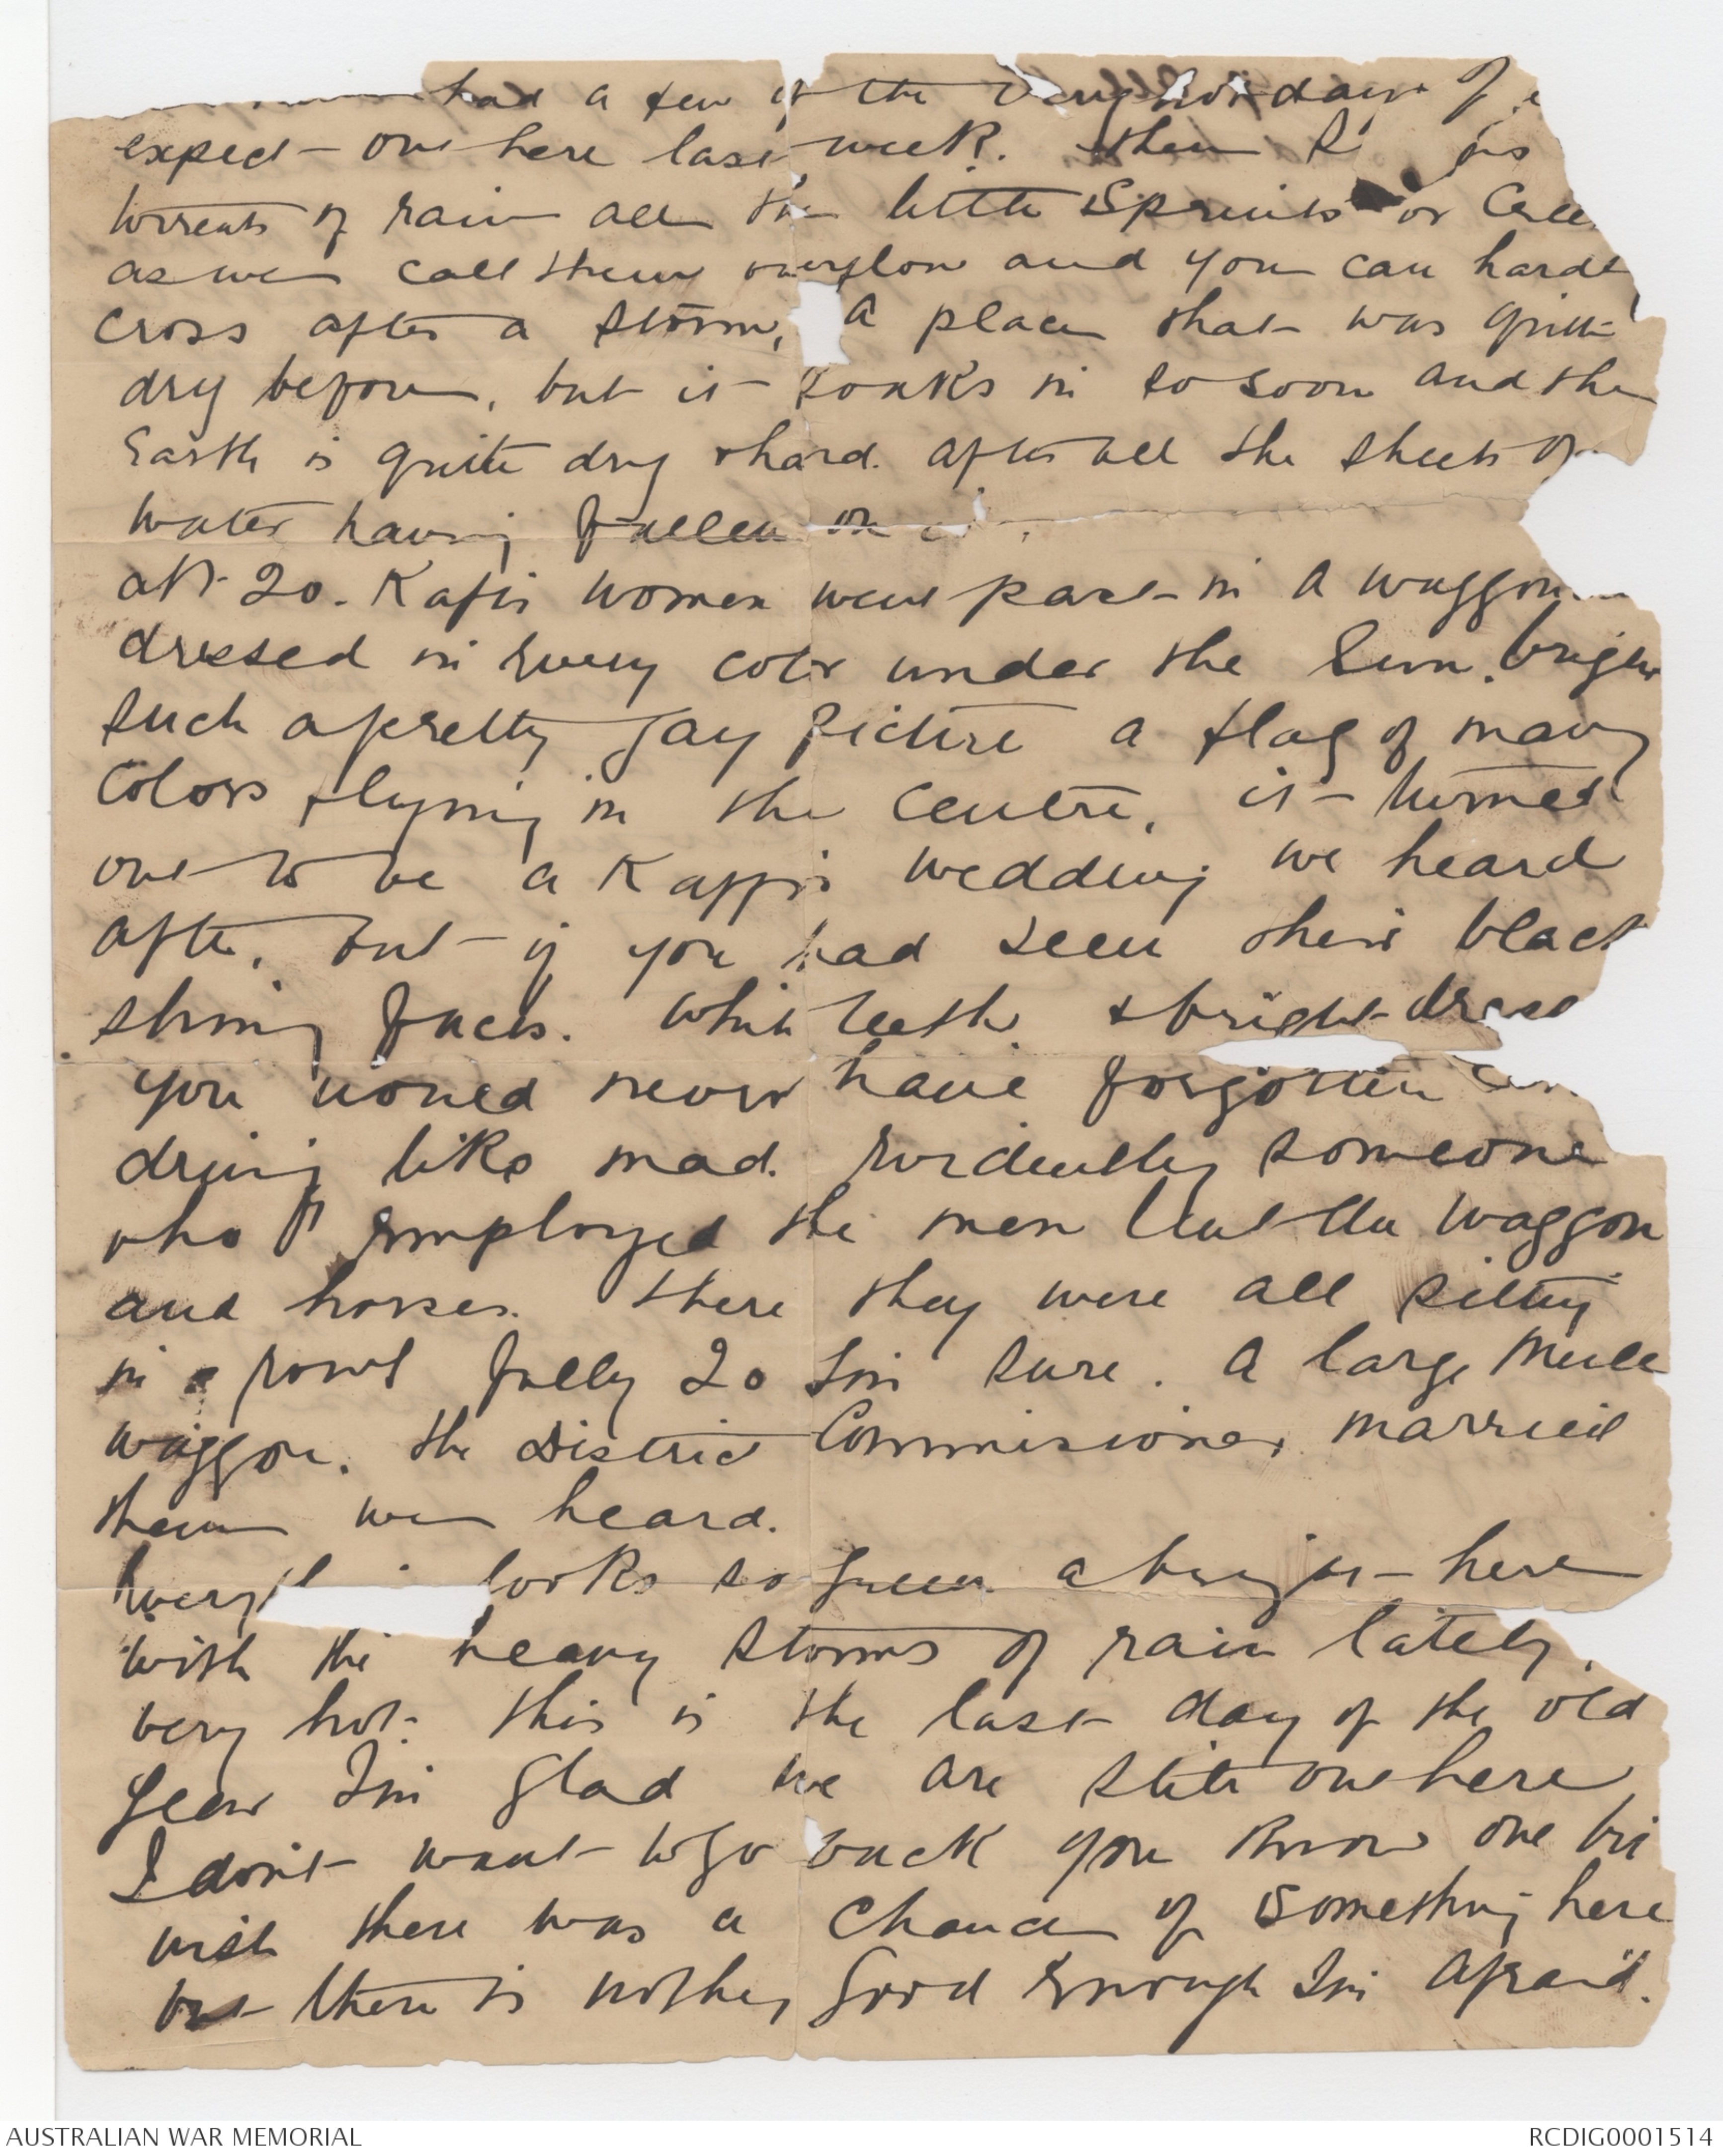 had a few of the very hot days I
expect out here last week. then
torrents of rain all the little Spruits or Cree
as we call them overflow and you can hardl
cross after a storm, a place that was quite
dry before, but it soaks in so soon and the
Earth is quite dry & hard after all the sheets of
water having fallen on
abt 20. Kafir women went past in a waggon
dressed in every color under the Sun. bright
such a pretty gay picture a flag of many
colors flying in the centre, it turned
out to be a Kaffir wedding we heard
after, but if you had seen their black
shiny faces. white teeth & bright dress
you would never have forgotten
driving like mad. Evidently someone
who employed the men lent the waggon
and horses. there they were all sitting
in a fully 20 I'm sure. A large Mule
waggon. the District Commissioner married
them we heard.
looks so green & bright here
with the heavy storms of rain lately.
very hot. this is the last day of the old
year I'm glad we are still out here
I don't want to go back you know one bit
wish there was a chance of something here
but there is nothing good enough I'm afraid.
AUSTRALIAN WAR MEMORIAL
RCDIG0001514